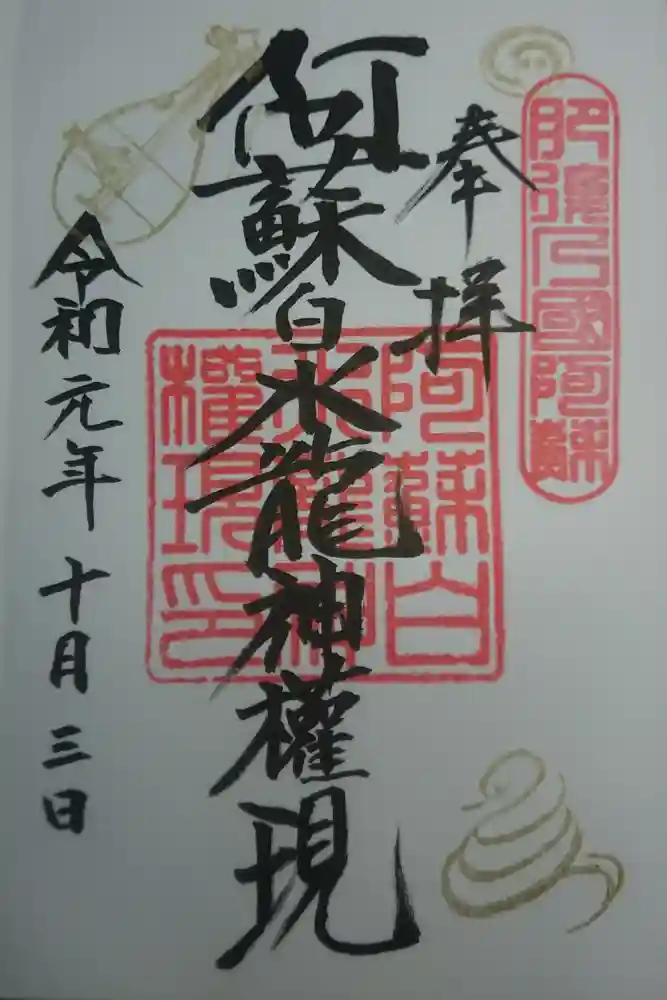 肥後乃國阿蘇
奉拝
阿蘇白水龍神權現
阿蘇白
水龍神
權現印
令和元年十月三日